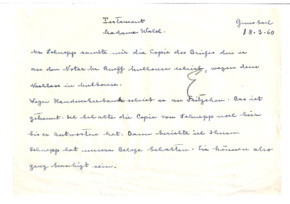 Testament
Madame Wald.
8-3-60
Mr Schnepp sandte mir die Copie des Briefes den er
an den Notar de Ruff Mulhouse schrieb, wegen dem
Nachlass in Mulhouse.
Wegen schrieb er an Fritzchen. Das ist
gekannt. Ich behalte die Copie von Schnepp noch hier
bis er Antworten hat. Dann berichte ich Ihnen.
Schnepp hat unsere Belege behalten. Sie können also
ganz beruhigt sein.